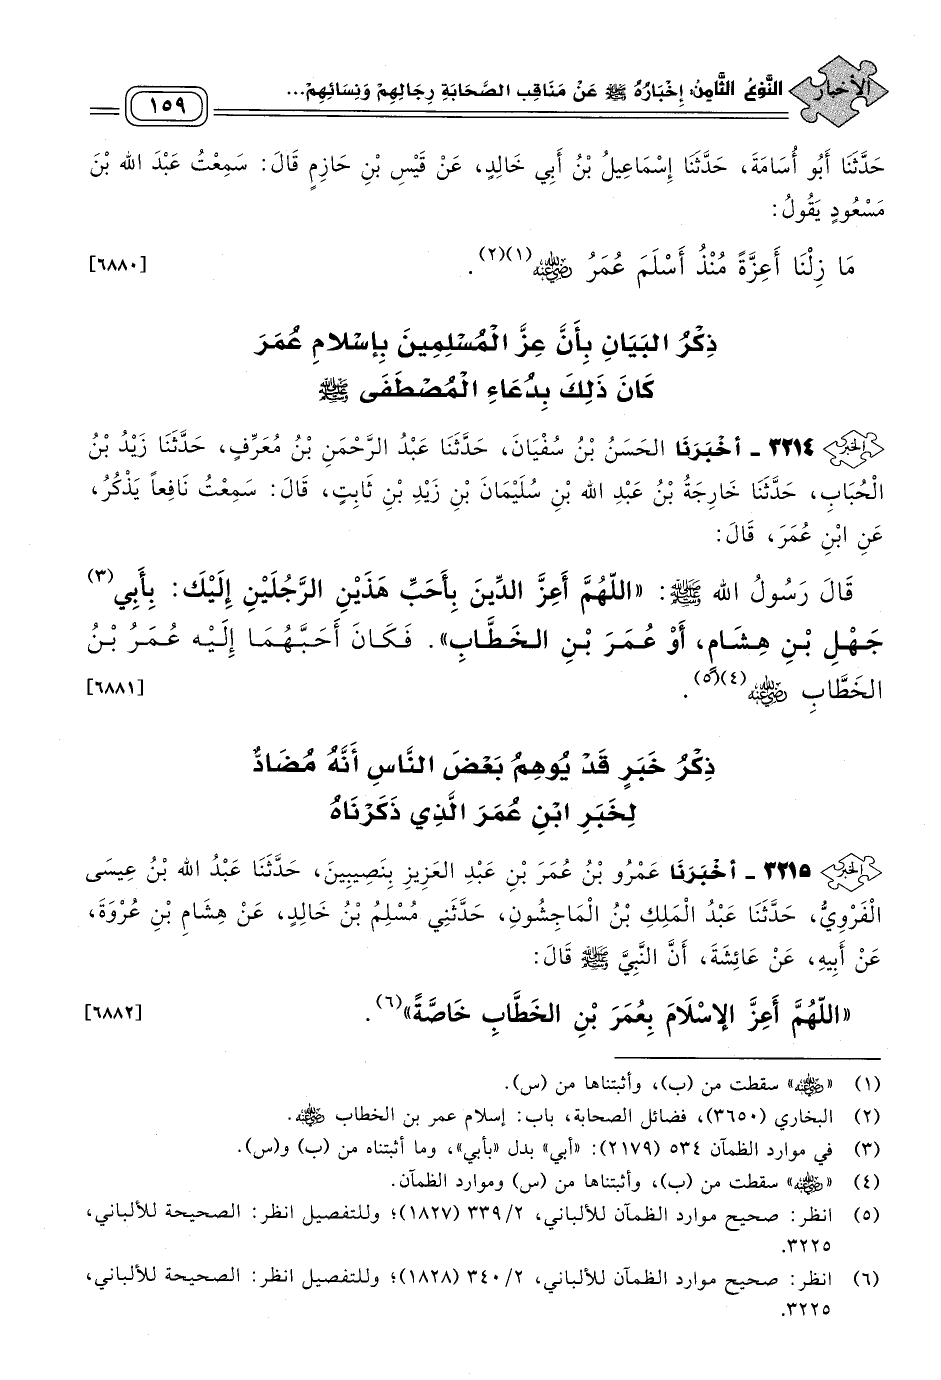 الأخبار النَّوْعُ الثَّامِنُ: إِخْبَارُهُ ﷺ عَنْ مَنَاقِبِ الصَّحَابَةِ رِجَالِهِمْ وَنِسَائِهِمْ... ١٥٩
حَدَّثَنَا أَبُو أُسَامَةَ، حَدَّثَنَا إِسْمَاعِيلُ بْنُ أَبِي خَالِدٍ، عَنْ قَيْسِ بْنِ حَازِمٍ قَالَ: سَمِعْتُ عَبْدَ الله بْنَ
مَسْعُودٍ يَقُولُ:
مَا زِلْنَا أَعِزَّةً مُنْذُ أَسْلَمَ عُمَرُ رضي الله عنه (١)(٢). [٦٨٨٠]
ذِكْرُ البَيَانِ بِأَنَّ عِزَّ الْمُسْلِمِينَ بِإِسْلامِ عُمَرَ
كَانَ ذَلِكَ بِدُعَاءِ الْمُصْطَفَى ﷺ
الخبر ٣٢١٤ ـ أخْبَرَنَا الحَسَنُ بْنُ سُفْيَانَ، حَدَّثَنَا عَبْدُ الرَّحْمَنِ بْنُ مُعَرِّفٍ، حَدَّثَنَا زَيْدُ بْنُ
الْحُبَابِ، حَدَّثَنَا خَارِجَةُ بْنُ عَبْدِ الله بْنِ سُلَيْمَانَ بْنِ زَيْدِ بْنِ ثَابِتٍ، قَالَ: سَمِعْتُ نَافِعاً يَذْكُرُ،
عَنِ ابْنِ عُمَرَ، قَالَ:
قَالَ رَسُولُ الله ﷺ: «اللَّهُمَّ أَعِزَّ الدِّينَ بِأَحَبِّ هَذَيْنِ الرَّجُلَيْنِ إِلَيْكَ: بِأَبِي (٣)
جَهْلِ بْنِ هِشَامٍ، أَوْ عُمَرَ بْنِ الخَطَّابِ». فَكَانَ أَحَبَّهُمَا إِلَيْهِ عُمَرُ بْنُ
الخَطَّابِ رضي الله عنه (٤)(٥). [٦٨٨١]
ذِكْرُ خَبَرٍ قَدْ يُوهِمُ بَعْضَ النَّاسِ أَنَّهُ مُضَادٌّ
لِخَبَرِ ابْنِ عُمَرَ الَّذِي ذَكَرْنَاهُ
الخبر ٣٢١٥ ـ أخْبَرَنَا عَمْرُو بْنُ عُمَرَ بْنِ عَبْدِ العَزِيزِ بِنَصِيبِينَ، حَدَّثَنَا عَبْدُ الله بْنُ عِيسَى
الْفَرْوِيُّ، حَدَّثَنَا عَبْدُ الْمَلِكِ بْنُ الْمَاجِشُونِ، حَدَّثَنِي مُسْلِمُ بْنُ خَالِدٍ، عَنْ هِشَامِ بْنِ عُرْوَةَ،
عَنْ أَبِيهِ، عَنْ عَائِشَةَ، أَنَّ النَّبِيَّ ﷺ قَالَ:
«اللَّهُمَّ أَعِزَّ الإِسْلَامَ بِعُمَرَ بْنِ الخَطَّابِ خَاصَّةً» (٦). [٦٨٨٢]
(١) «رضي الله عنه» سقطت من (ب)، وأثبتناها من (س).
(٢) البخاري (٣٦٥٠)، فضائل الصحابة، باب: إسلام عمر بن الخطاب رضي الله عنه.
(٣) في موارد الظمآن ٥٣٤ (٢١٧٩): «أبي» بدل «بأبي»، وما أثبتناه من (ب) و(س).
(٤) «رضي الله عنه» سقطت من (ب)، وأثبتناها من (س) وموارد الظمآن.
(٥) انظر: صحيح موارد الظمآن للألباني، ٣٣٩/٢ (١٨٢٧)؛ وللتفصيل انظر: الصحيحة للألباني،
٣٢٢٥.
(٦) انظر: صحيح موارد الظمآن للألباني، ٣٤٠/٢ (١٨٢٨)؛ وللتفصيل انظر: الصحيحة للألباني،
٣٢٢٥.